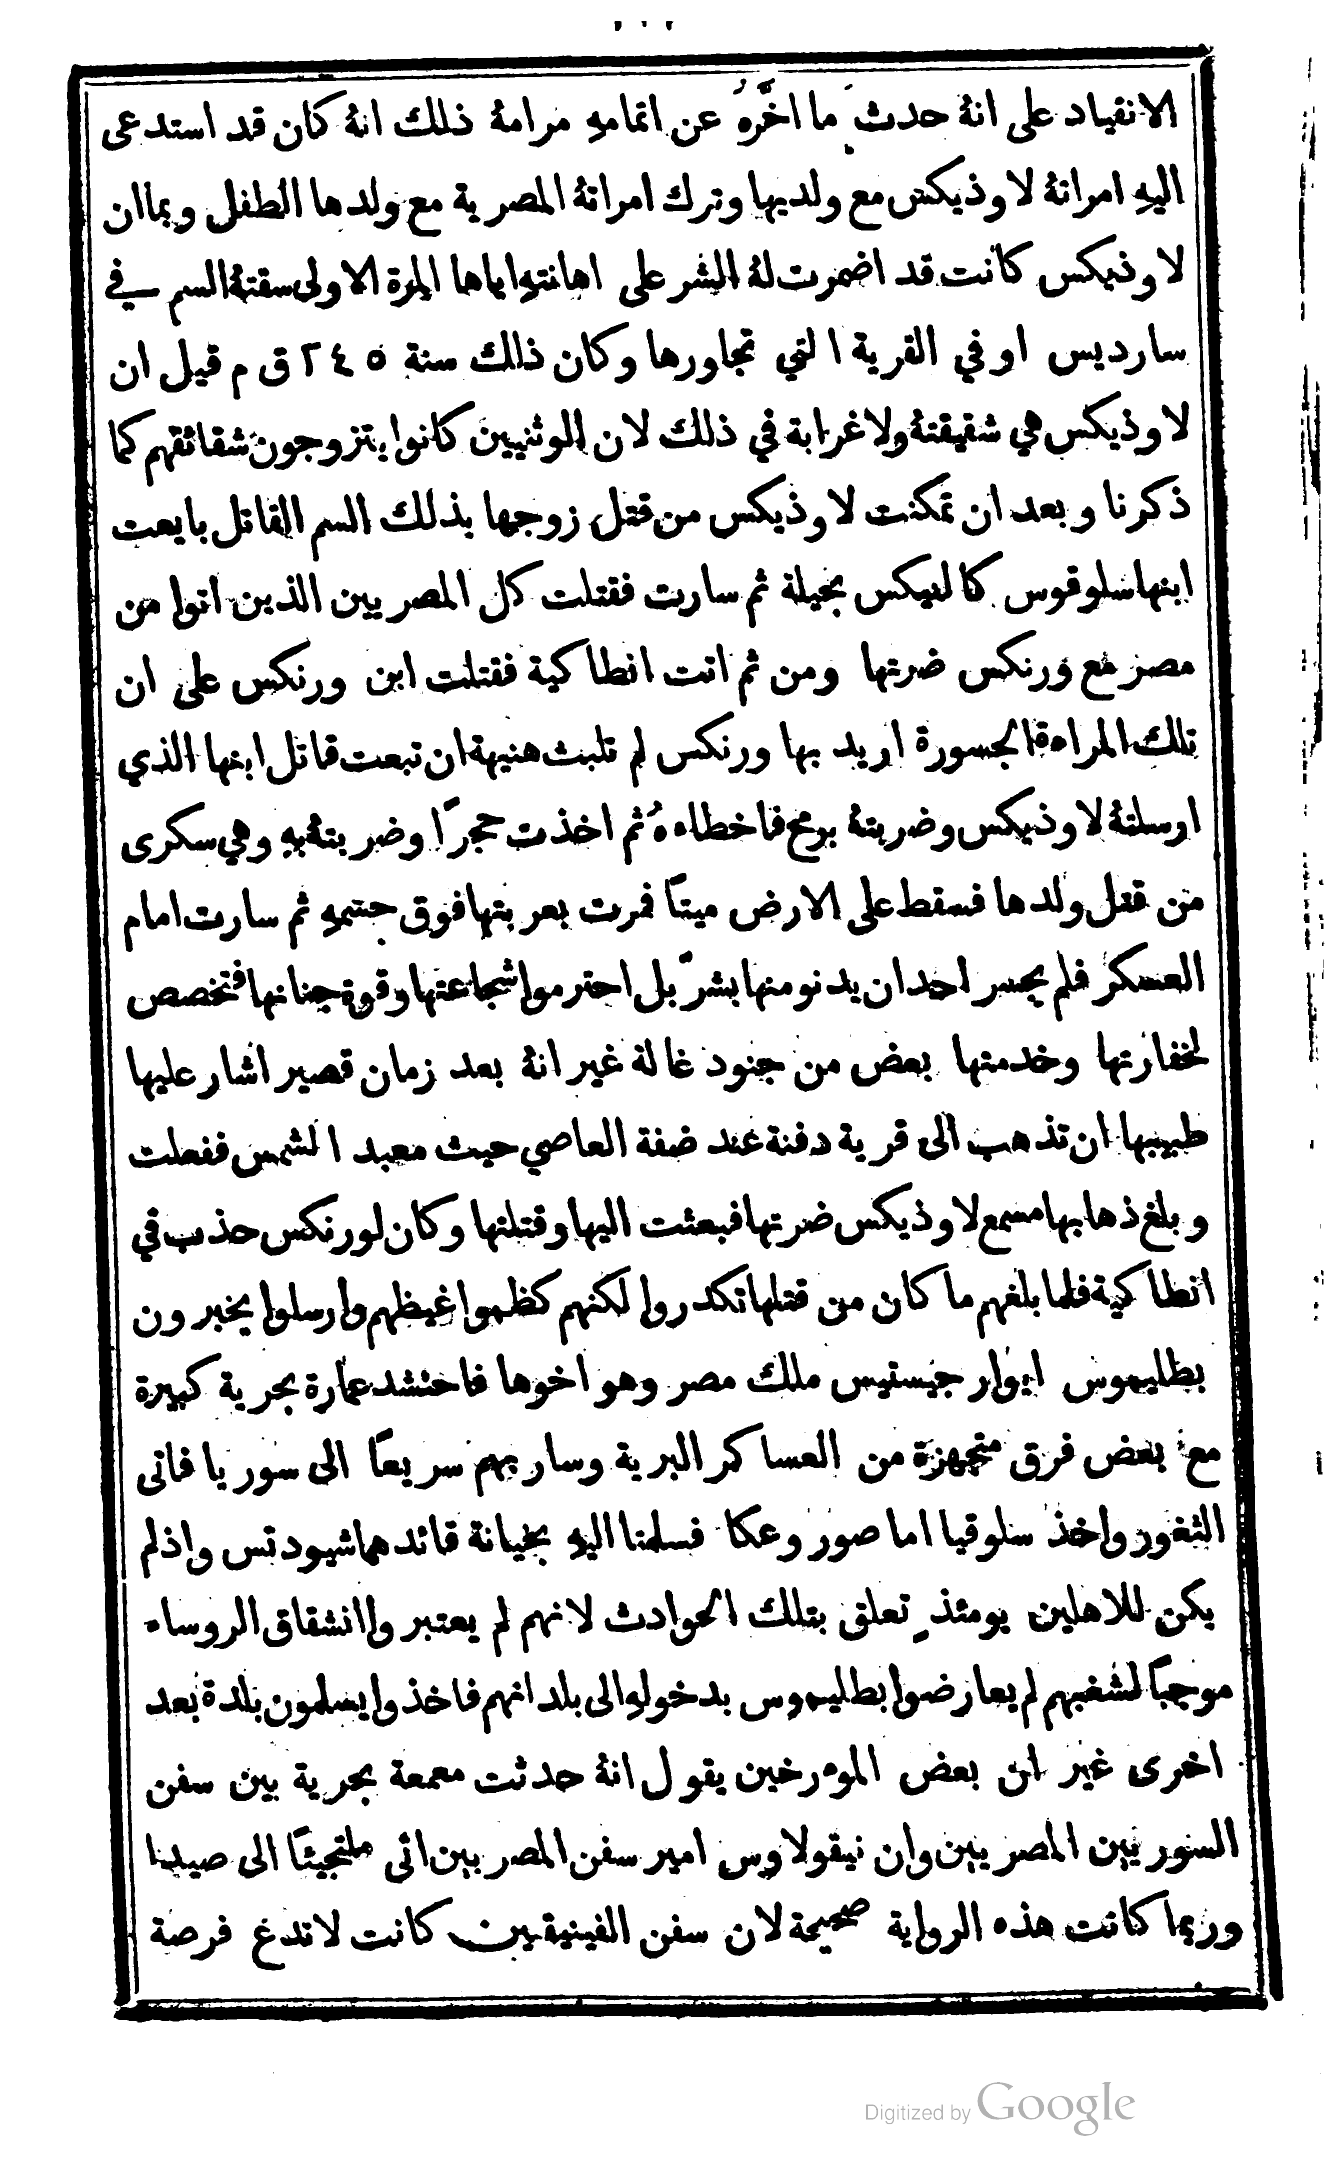 الانقياد على انهُ حدث ما اخَّرهُ عن اتمامهِ مرامهُ ذلك انهُ كان قد استدعى
اليهِ امراتهُ لاوذيكس مع ولديها وترك امراتهُ المصرية مع ولدها الطفل وبما ان
لاوذيكس كانت قد اضمرت لهُ الشر على اهانتهِ اياها المرة الاولى سقتهُ السم في
سارديس او في القرية التي تجاورها وكان ذلك سنة ٢٤٥ ق م قيل ان
لاوذيكس هي شقيقتهُ ولا غرابة في ذلك لان الوثنيين كانوا يتزوجون شقائقهم كما
ذكرنا وبعد ان تمكنت لاوذيكس من قتل زوجها بذلك السم القاتل بايعت
ابنها سلوقوس كالنيكس بحيلة ثم سارت فقتلت كل المصريين الذين اتوا من
مصر مع ورنكس ضرتها ومن ثم اتت انطاكية فقتلت ابن ورنكس على ان
تلك المراءة الجسورة اريد بها ورنكس لم تلبث هنيهة ان تبعت قاتل ابنها الذي
ارسلتهُ لاوذيكس وضربتهُ برمح فاخطاءهُ ثم اخذت حجرًا وضربتهُ بهِ وهي سكرى
من قتل ولدها فسقط على الارض ميتًا فمرت بعربتها فوق جسمهِ ثم سارت امام
العسكر فلم يجسر احد ان يدنو منها بشرّ بل احترموا شجاعتها وقوة جنانها فتخصص
لخفارتها وخدمتها بعض من جنود غالة غير انهُ بعد زمان قصير اشار عليها
طبيبها ان تذهب الى قرية دفنة عند ضفة العاصي حيث معبد الشمس ففعلت
وبلغ ذهابها مسمع لاوذيكس ضرتها فبعثت اليها وقتلتها وكان لورنكس حذب في
انطاكية فلما بلغهم ما كان من قتلها تكدروا لكنهم كظموا غيظهم وارسلوا يخبرون
بطليموس ايوارجيستيس ملك مصر وهو اخوها فاحتشد عمارة بحرية كبيرة
مع بعض فرق متجهزة من العساكر البرية وسار بهم سريعًا الى سوريا فاتى
الثغور واخذ سلوقيا اما صور وعكا فسلمتا اليهِ بخيانة قائدهما شيودتس واذ لم
يكن للاهلين يومئذٍ تعلق بتلك الحوادث لانهم لم يعتبروا انشقاق الروساء
موجبًا لشغبهم لم يعارضوا بطليموس بدخولهِ الى بلدانهم فاخذوا يسلمون بلدة بعد
اخرى غير ان بعض الموءرخين يقول انهُ حدثت معمعة بحرية بين سفن
السوريين المصريين وان نيقولاوس امير سفن المصريين اتى ملتجيئًا الى صيدا
وربما كانت هذه الرواية صحيحة لان سفن الفينيقيين كانت لا تدع فرصة
Digitized by Google